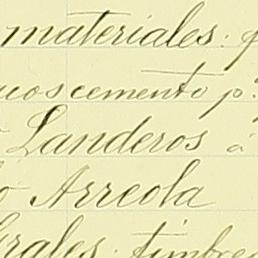 materiales.
cemento p.
Landeros á
Arreola
timbre